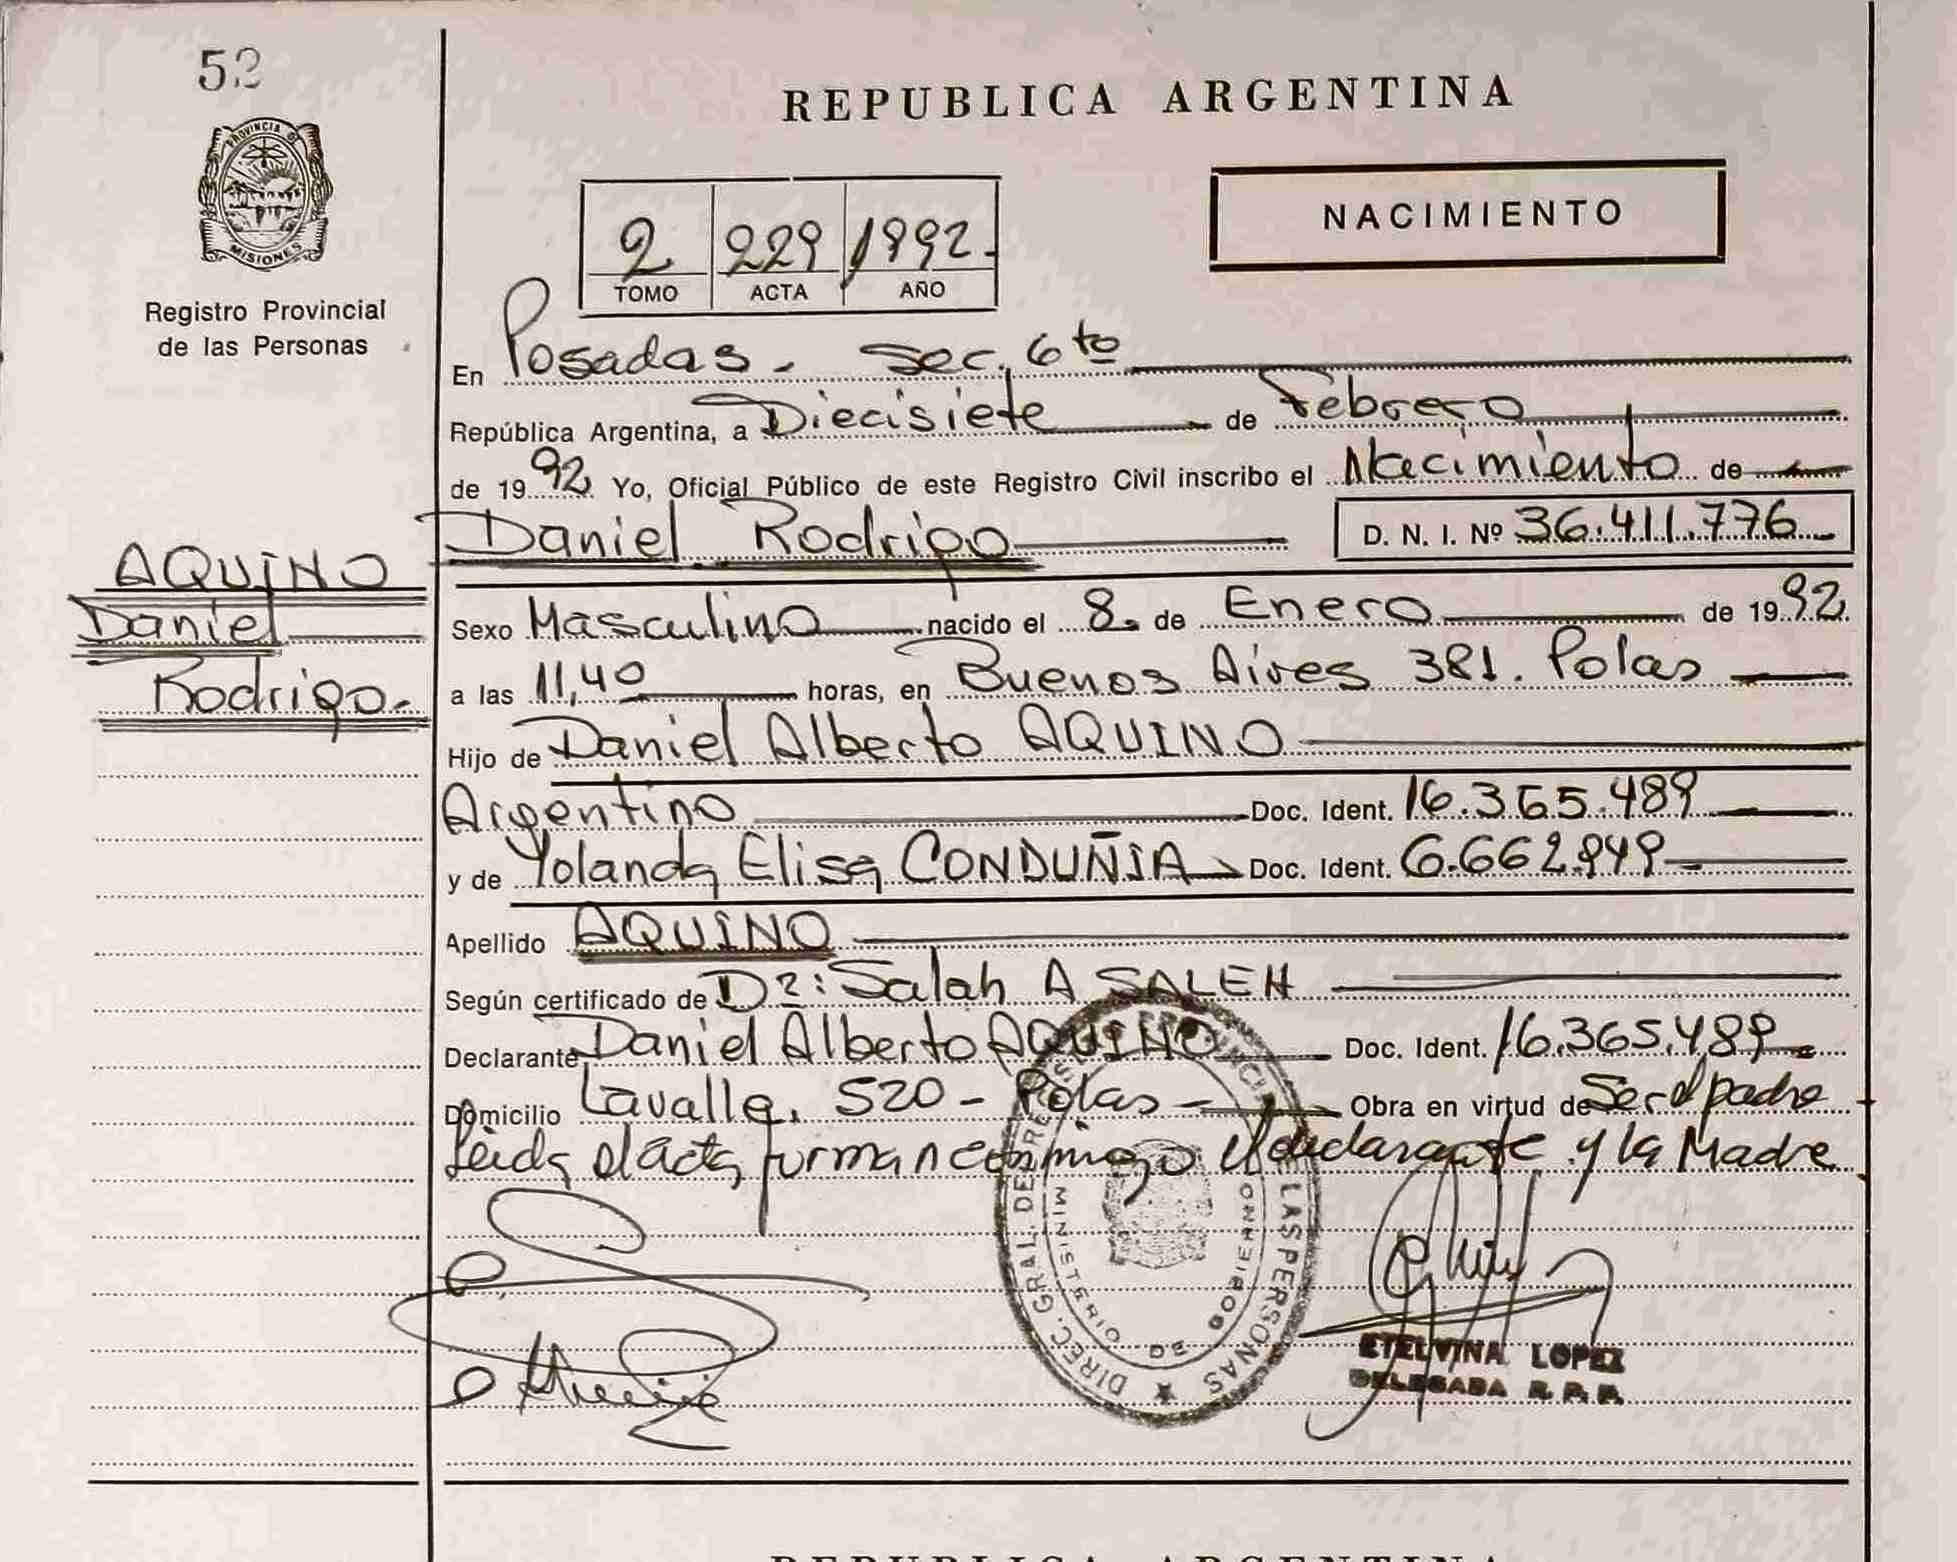 52
PROVINCIA DE
MISIONES
Registro Provincial
de las Personas
REPUBLICA ARGENTINA
NACIMIENTO
2 229 1992.
TOMO ACTA AÑO
En Posadas. Sec. 6to
República Argentina, a Diecisiete de Febrero
de 1992. Yo, Oficial Público de este Registro Civil inscribo el Nacimiento de
Daniel Rodrigo D. N. I. Nº 36.411.776
AQUINO
Daniel
Rodrigo.
Sexo Masculino nacido el 8. de Enero de 1992.
a las 11,40 horas, en Buenos Aires 381. Pdas
Hijo de Daniel Alberto AQUINO
Argentino Doc. Ident. 16.365.489
y de Yolanda Elisa CONDUÑJA Doc. Ident. 6.662.949
Apellido AQUINO
Según certificado de Dr: Salah A SALEH
Declarante Daniel Alberto AQUINO Doc. Ident. 16.365.489
Domicilio Lavalle. 520 - Pdas - Obra en virtud de Ser el padre
Leida el acta firman conmigo el declarante y la Madre
DIREC. GRAL. DEL REG. PROVINCIAL DE LAS PERSONAS
MINISTERIO DE GOBIERNO
ETELVINA LOPEZ
DELEGADA R. P. P.
REPUBLICA ARGENTINA